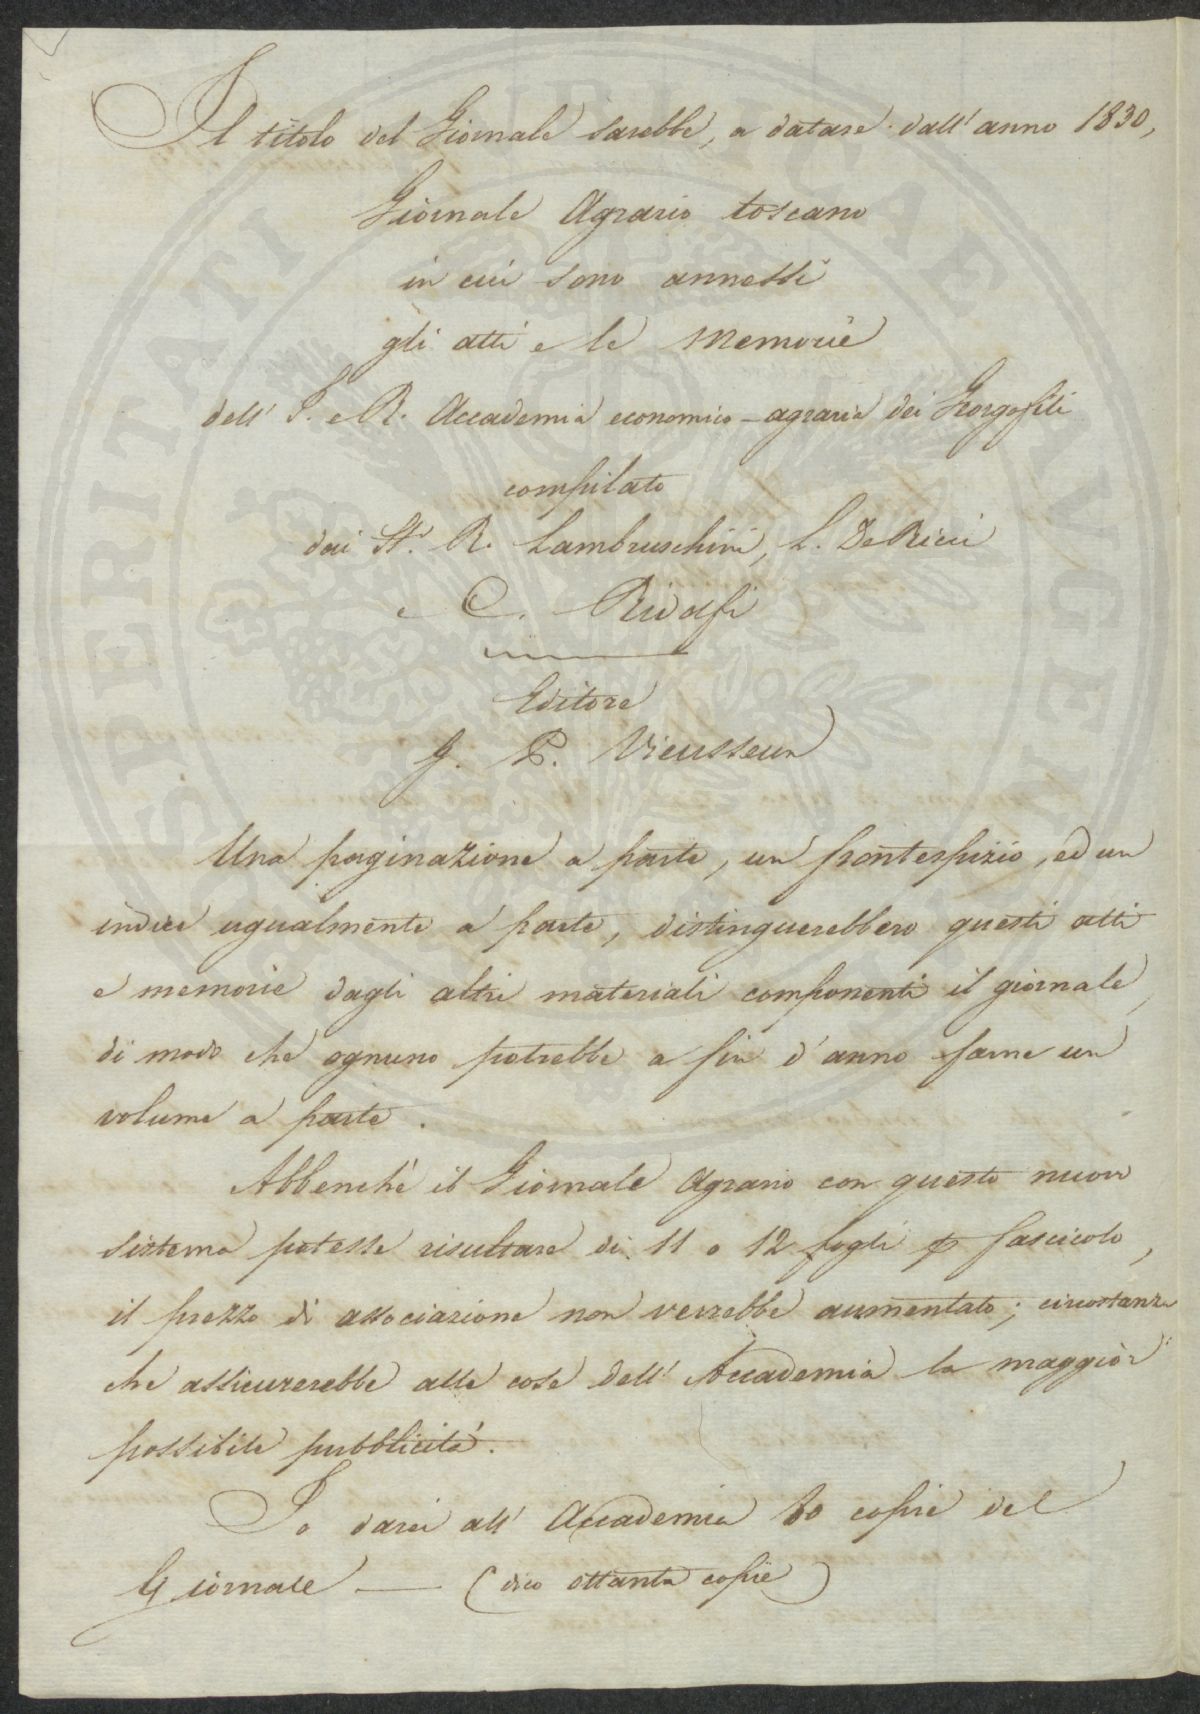 Il titolo del Giornale sarebbe, a datare dall' anno 1830,
Giornale Agrario toscano
in cui sono annessi
gli atti e le Memorie
dell' I. e R. Accademia economico-agraria dei Georgofili
compilato
dai Sri. R. Lambruschini, L. De Ricci
e C. Ridolfi
Editore
G. P. Vieusseux
Una paginazione a parte, un frontespizio, ed un
indice ugualmente a parte, distinguerebbero questi atti
e memorie dagli altri materiali componenti il giornale,
di modo che ognuno potrebbe a fin d'anno farne un
volume a parte.
Abbenchè il Giornale Agrario con questo nuovo
sistema potesse risultare di 11 o 12 fogli p fascicolo,
il prezzo di associazione non verrebbe aumentato; circostanza
che assicurerebbe alle cose dell' Accademia la maggior
possibile pubblicità.
Io darei all' Accademia 80 copie del
Giornale — (dico ottanta copie)
SPERITATI PUBLICAE